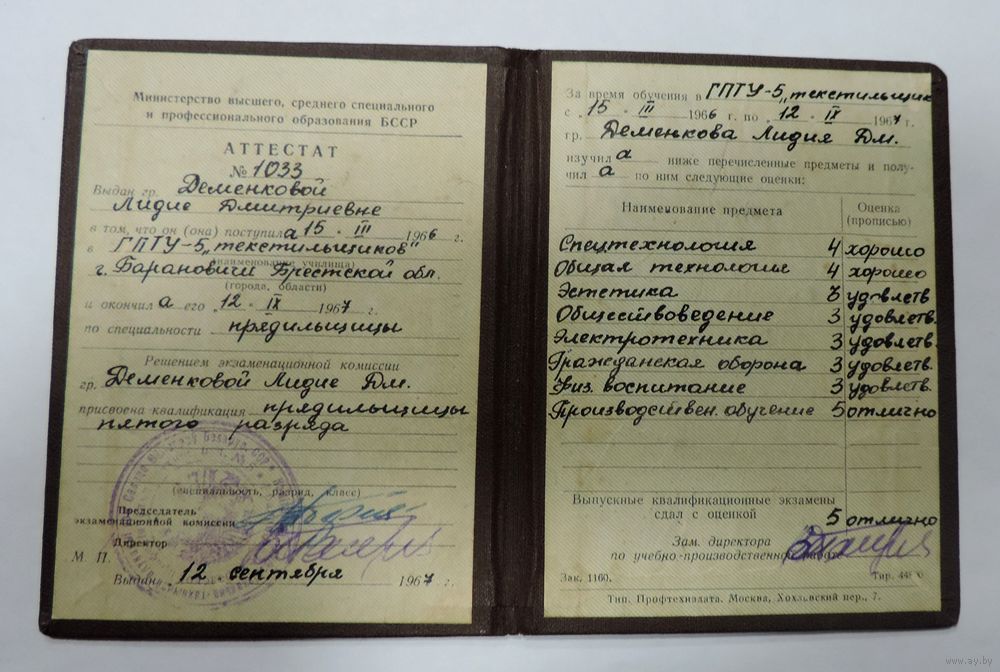 Министерство высшего, среднего специального
и профессионального образования БССР
АТТЕСТАТ
№ 1033
Выдан гр. Деменковой
Лидие Дмитриевне
в том, что он (она) поступила 15 · III 1966 г.
в ГПТУ-5 „текстильщиков"
(наименование училища)
г. Барановичи Брестской обл.
(города, области)
и окончила его 12 · IX 1967
по специальности прядильщицы
Решением экзаменационной комиссии
гр. Деменковой Лидие Дм.
присвоена квалификация прядильщицы
пятого разряда
(специальность, разряд, класс)
Председатель
экзаменационной комиссии
Директор
М. П.
Выдан 12 · сентября 1967 г.
За время обучения в ГПТУ-5 „текстильщик
с 15 · III 1966 г. по 12 · IX 1967 г.
гр. Деменкова Лидия Дм.
изучил а ниже перечисленные предметы и полу-
чил а по ним следующие оценки:
Наименование предмета Оценка
(прописью)
Спецтехнология 4 хорошо
Общая технология 4 хорошо
Эстетика 3 удовлетв
Обществоведение 3 удовлетв.
Электротехника 3 удовлетв.
Гражданская оборона 3 удовлетв.
Физ. воспитание 3 удовлетв.
Производствен. обучение 5 отлично
Выпускные квалификационные экзамены
сдал с оценкой 5 отлично
Зам. директора
по учебно-производственной работе
Зак. 1160. Тир.
Тип. Профтехиздата. Москва, Хохловский пер., 7.
www.ay.by